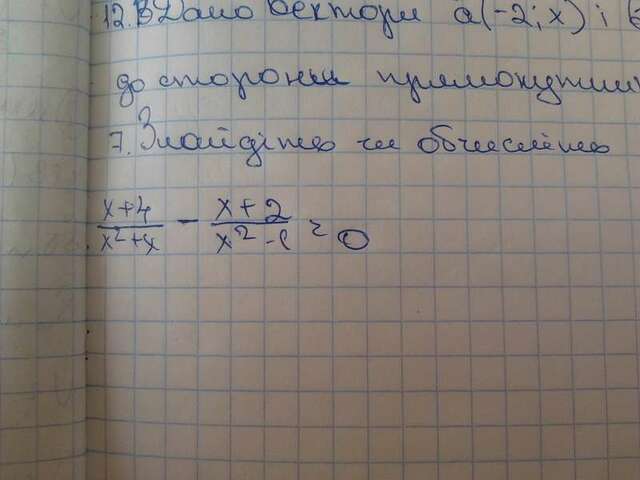 12. В) Дано вектори a(-2; x) і
до сторони прямокутник
7. Знайдіть чи обчисліть
x+4 / x²+x - x+2 / x²-1 = 0